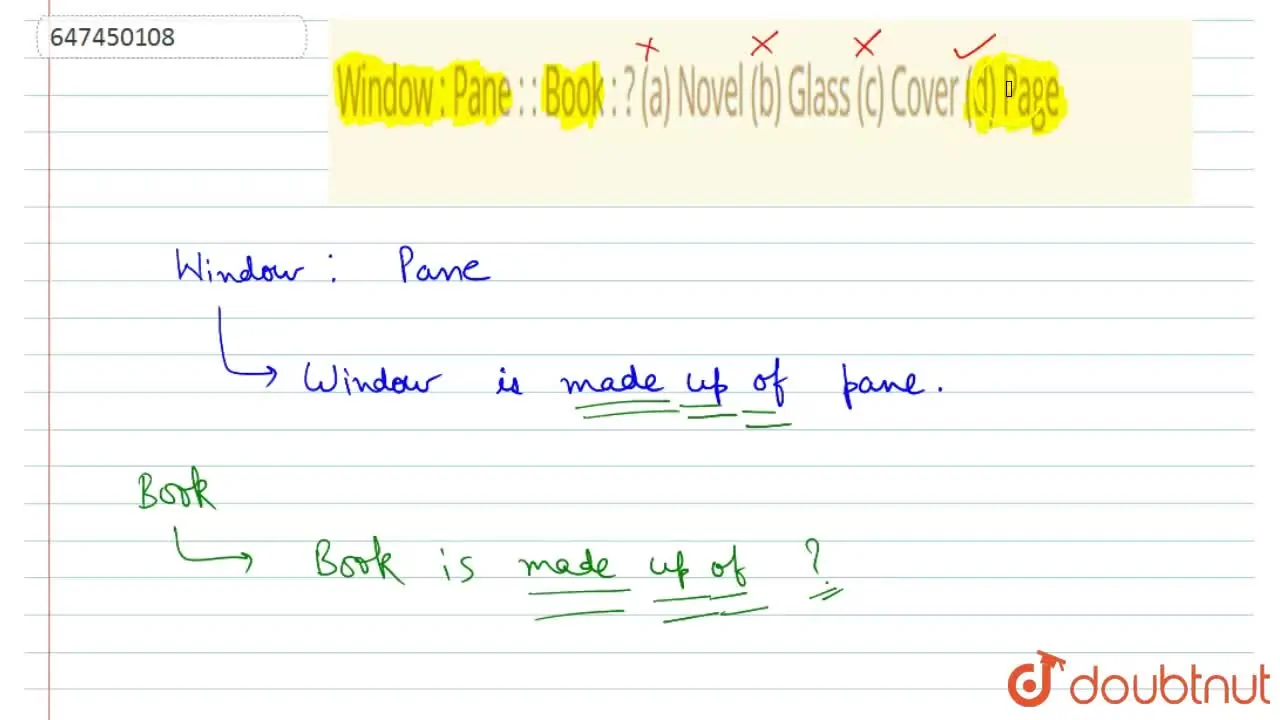 647450108
Window : Pane : : Book : ? (a) Novel (b) Glass (c) Cover (d) Page
Window : Pane
Window is made up of pane.
Book
Book is made up of ?
doubtnut